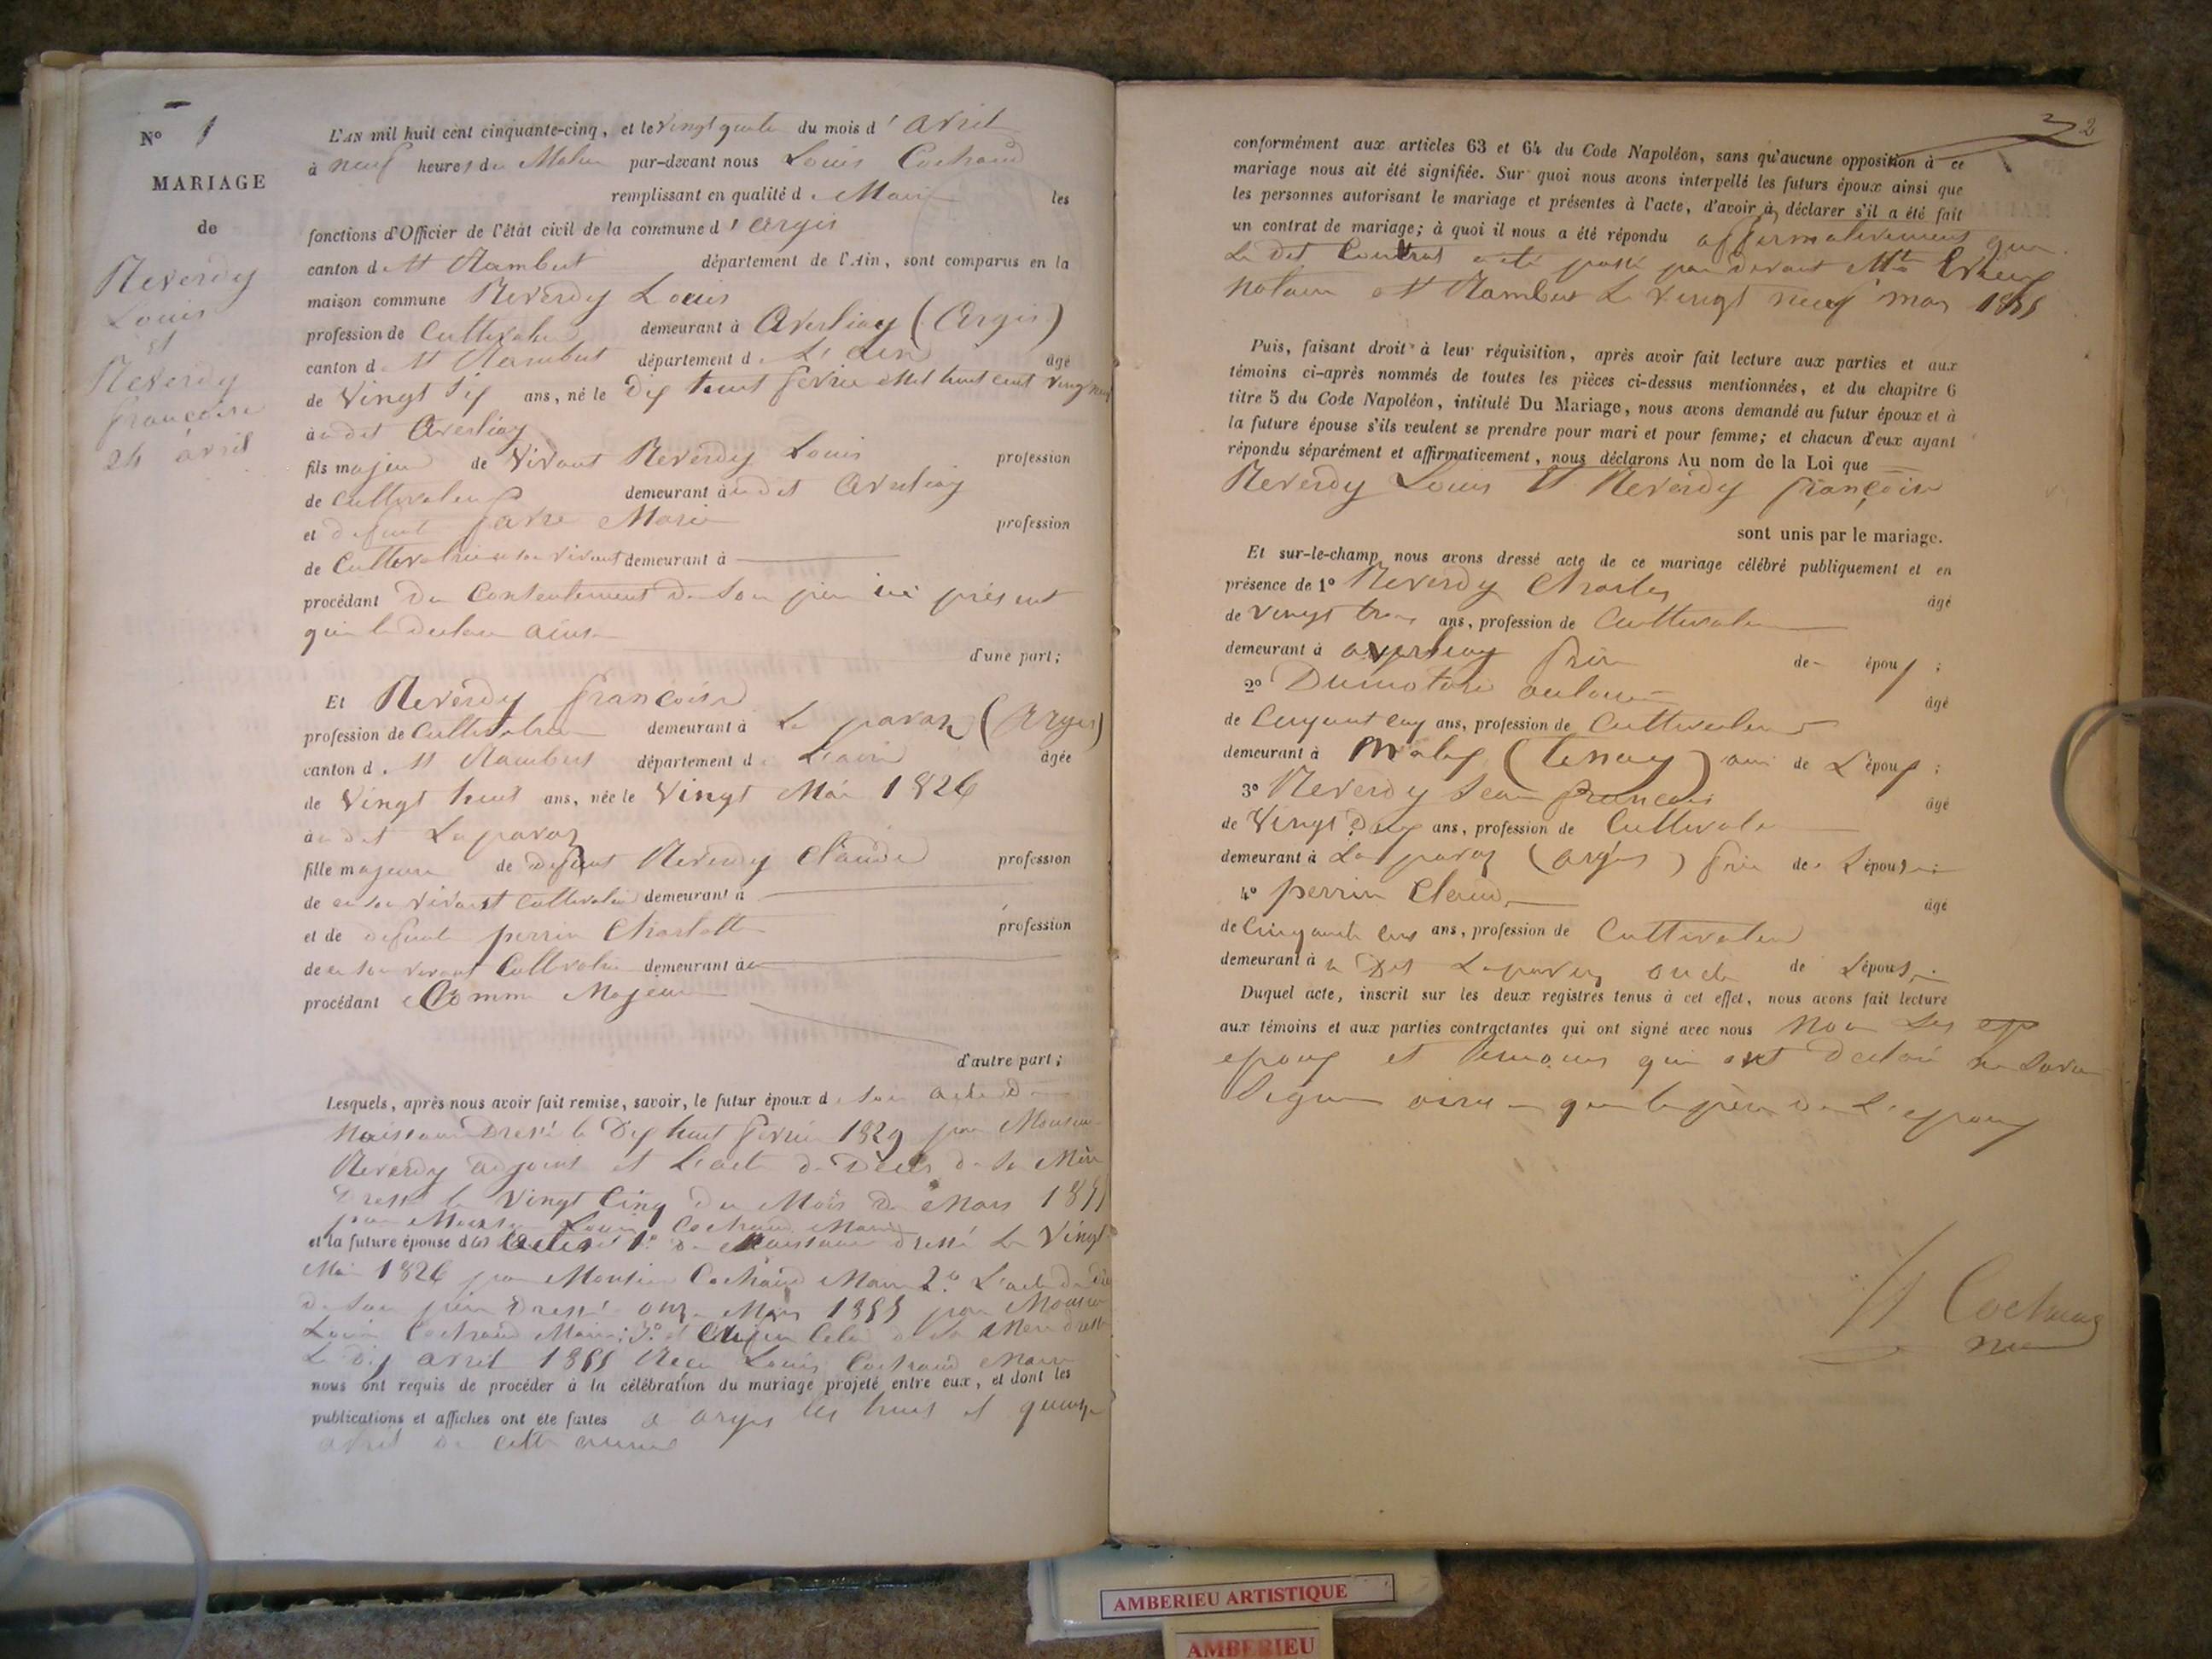 N° 1
MARIAGE
de
Reverdy
Louis
et
Reverdy
françoise
24 avril
L'AN mil huit cent cinquante-cinq, et le vingt quatre du mois d' avril
à neuf heures du Matin par-devant nous Louis Cochand
remplissant en qualité de Maire les
fonctions d'Officier de l'état civil de la commune d' argis
canton de St Rambert département de l'Ain, sont comparus en la
maison commune Reverdy Louis
profession de Cultivateur demeurant à Averliaz (Argis)
canton de St Rambert département de L'ain âgé
de Vingt six ans, né le dix huit fevrier mil huit cent vingt neuf
à u dit Averliaz
fils majeur de vivant Reverdy Louis profession
de Cultivateur demeurant à u dit Averliaz
et defunte favre Marie profession
de Cultivatrice en son vivant demeurant à
procédant du Consentement de son père ici présent
qui le declare ainsi
d'une part;
Et Reverdy françoise
profession de Cultivatrice demeurant à La paraz (Argis)
canton de St Rambert département de L'ain âgée
de Vingt huit ans, née le Vingt Mai 1826
à u dit La paraz
fille majeure de defunt Reverdy Claude profession
de en son vivant cultivateur demeurant à
et de defunte perrin Charlotte profession
de en son vivant Cultivatrice demeurant à
procédant Comme Majeure
d'autre part;
Lesquels, après nous avoir fait remise, savoir, le futur époux de son acte de
Naissance Dressé le Dix huit fevrier 1829 par Monsieur
Reverdy adjoint et L'acte de Décès de sa Mère
Dressé le vingt Cinq Du Mois de Mars 1855
par Monsieur Louis Cochand Maire
et la future épouse des actes 1° de Naissance dressé Le Vingt
Mai 1826 par Monsieur Cochand Maire 2° L'acte de décès
de son père Dressé onze Mars 1855 par Monsieur
Louis Cochand Maire; 3° et Celui de sa Mère dressé
Le dix avril 1855 Louis Cochand Maire
nous ont requis de procéder à la célébration du mariage projeté entre eux, et dont les
publications et affiches ont été faites a argis les huit et quinze
avril de cette année
2
conformément aux articles 63 et 64 du Code Napoléon, sans qu'aucune opposition à ce
mariage nous ait été signifiée. Sur quoi nous avons interpellé les futurs époux ainsi que
les personnes autorisant le mariage et présentes à l'acte, d'avoir à déclarer s'il a été fait
un contrat de mariage; à quoi il nous a été répondu affirmativement que
Le dit Contrat a été passé par devant Mtre
notaire St Rambert Le vingt neuf mars 1855
Puis, faisant droit à leur réquisition, après avoir fait lecture aux parties et aux
témoins ci-après nommés de toutes les pièces ci-dessus mentionnées, et du chapitre 6
titre 5 du Code Napoléon, intitulé Du Mariage, nous avons demandé au futur époux et à
la future épouse s'ils veulent se prendre pour mari et pour femme; et chacun d'eux ayant
répondu séparément et affirmativement, nous déclarons Au nom de la Loi que
Reverdy Louis Et Reverdy françoise
sont unis par le mariage.
Et sur-le-champ nous avons dressé acte de ce mariage célébré publiquement et en
présence de 1° Reverdy Charles âgé
de vingt trois ans, profession de Cultivateur
demeurant à averliaz frère de époux;
2° Dumolard âgé
de Cinquante cinq ans, profession de Cultivateur
demeurant à (tenay) ami de L'époux;
3° Reverdy Jean françois âgé
de Vingt Deux ans, profession de Cultivateur
demeurant à La paraz (argis) frère de L'épouse;
4° perrin Claude âgé
de Cinquante ans, profession de Cultivateur
demeurant à u Dit La paraz oncle de L'épouse.
Duquel acte, inscrit sur les deux registres tenus à cet effet, nous avons fait lecture
aux témoins et aux parties contractantes qui ont signé avec nous Non Les
epoux et temoins qui ont declaré ne savoir
Signer ainsi que le père de L'epoux
Cochand
AMBERIEU ARTISTIQUE
AMBERIEU